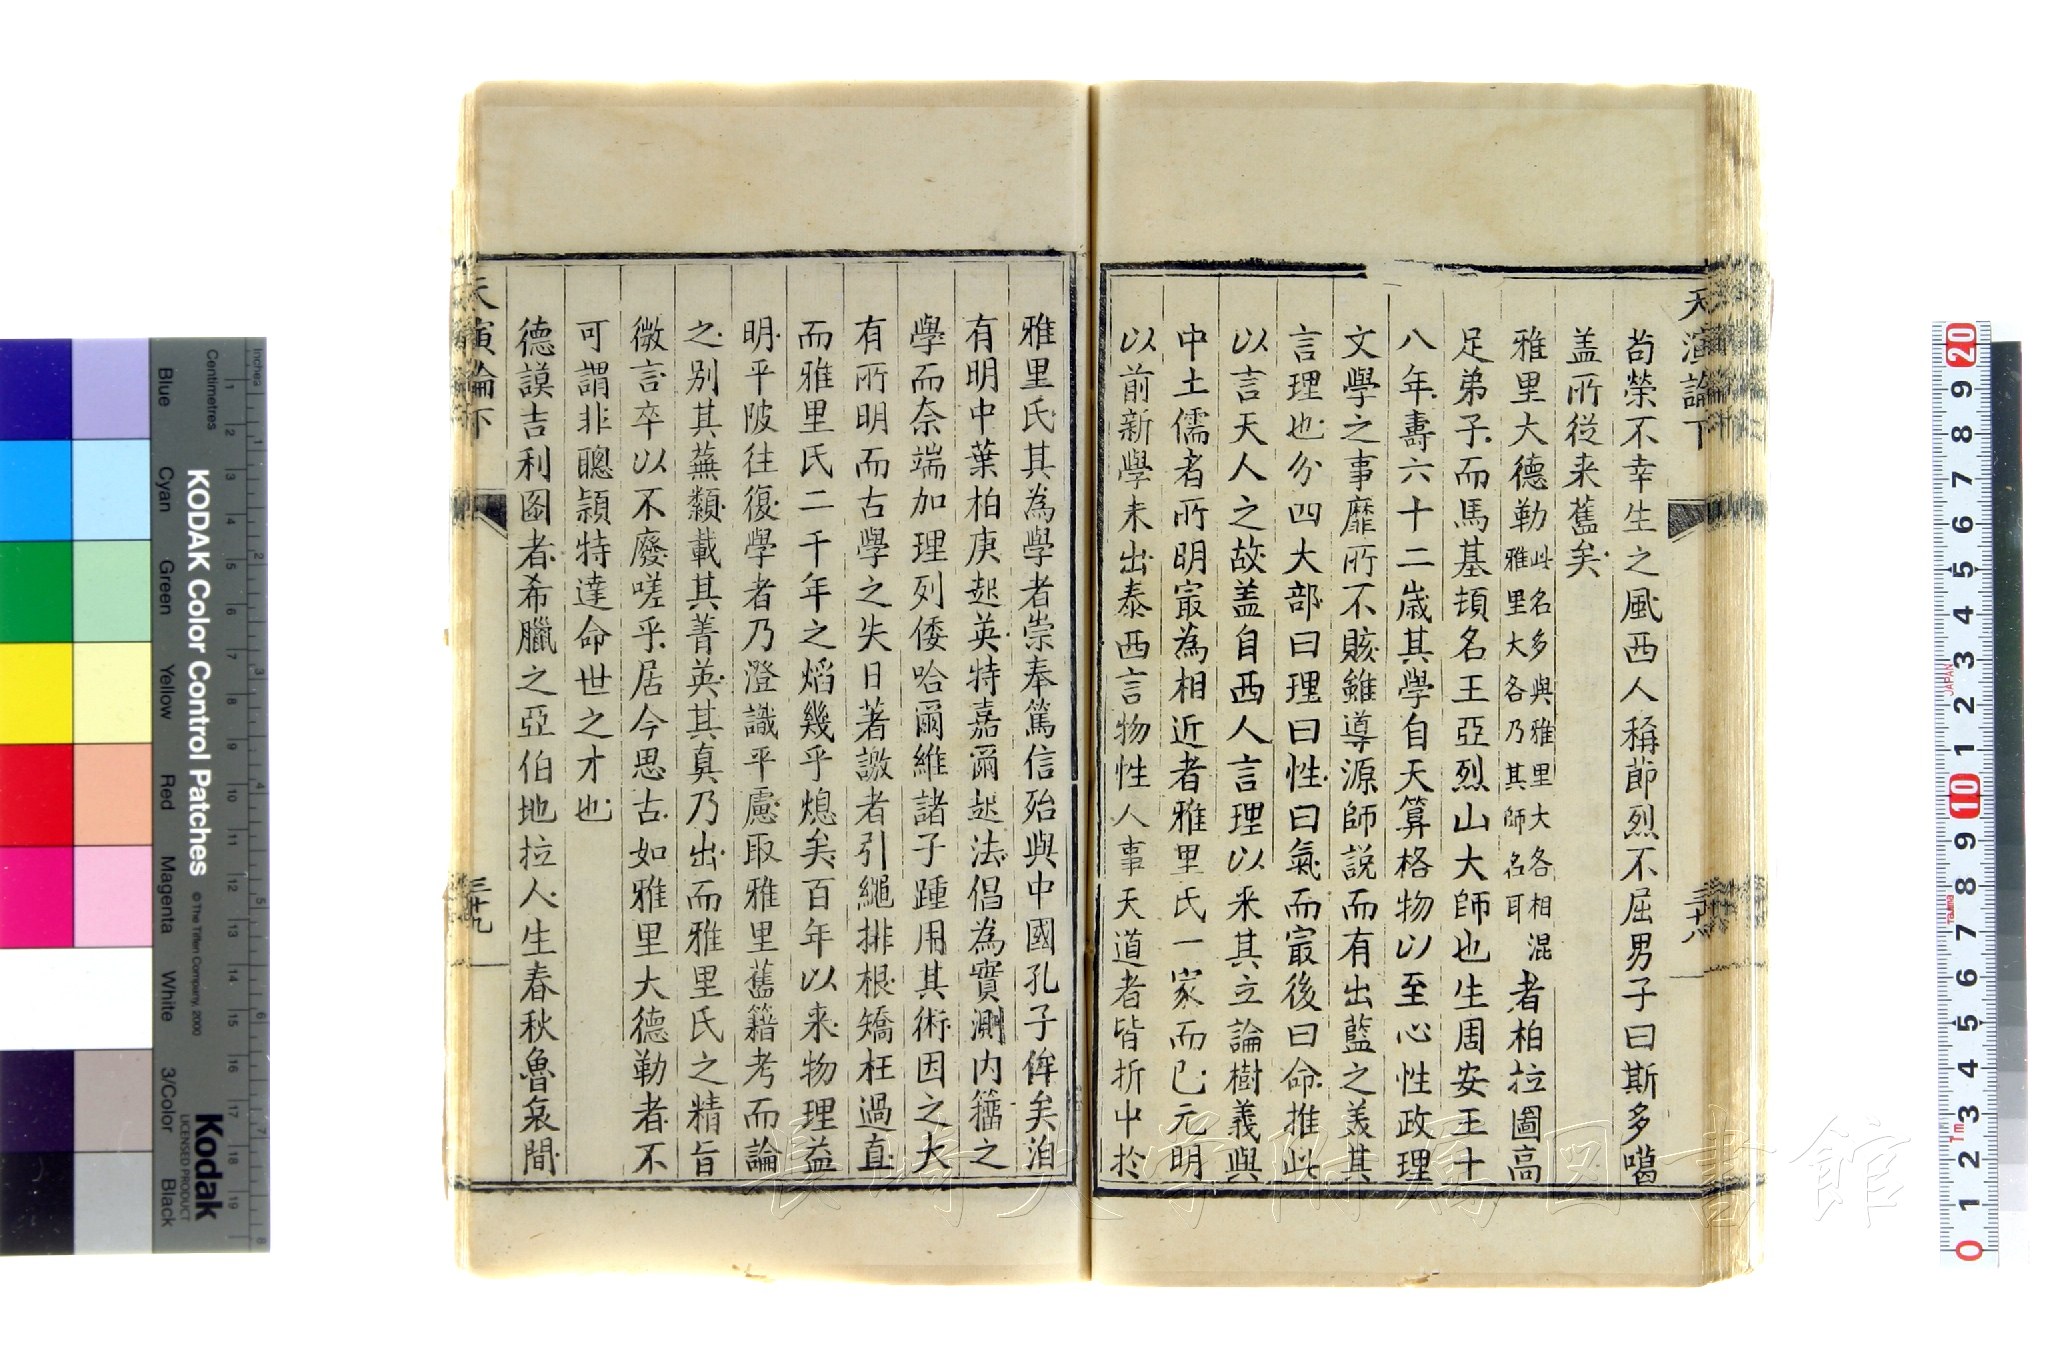 天演論下
三十八
苟榮不幸生之風西人稱節烈不屈男子曰斯多噶
盖所從来舊矣
雅里大德勒此名多與雅里大各相混雅里大各乃其師名耳者柏拉圖高
足弟子而馬基頓名王亞烈山大師也生周安王十
八年壽六十二歲其學自天算格物以至心性政理
文學之事靡所不賅雖導源師說而有出藍之美其
言理也分四大部曰理曰性曰氣而㝡後曰命推此
以言天人之故盖自西人言理以来其立論樹義與
中土儒者所明㝡為相近者雅里氏一家而已元明
以前新學未出泰西言物性人事天道者皆折中於
雅里氏其為學者崇奉篤信殆與中國孔子侔矣洎
有明中葉柏庚起英特嘉爾起法倡為實測内籀之
學而奈端加理列倭哈爾維諸子踵用其術因之大
有所明而古學之失日著譤者引繩排根矯枉過直
而雅里氏二千年之焰幾乎熄矣百年以来物理益
明平陂往復學者乃澄識平慮取雅里舊籍考而論
之別其蕪纇載其菁英其真乃出而雅里氏之精旨
微言卒以不廢嗟乎居今思古如雅里大德勒者不
可謂非聰頴特達命世之才也
德謨吉利圖者希臘之亞伯地拉人生春秋魯哀間
天演論下
三十九
長崎大学附属図書館
KODAK Color Control Patches
© The Tiffen Company, 2000
Kodak
LICENSED PRODUCT
Inches
Centimetres
Blue
Cyan
Green
Yellow
Red
Magenta
White
3/Color
Black
JAPAN